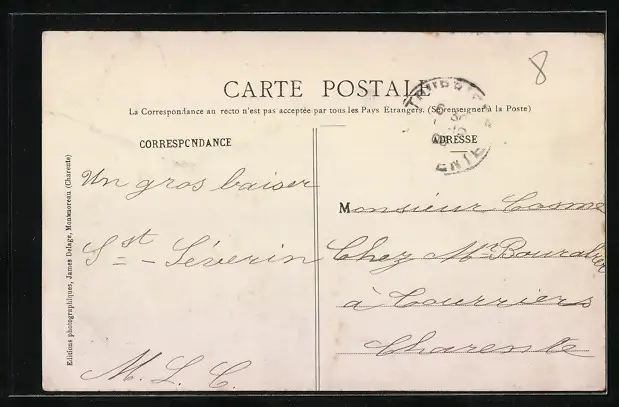 8
CARTE POSTALE
La Correspondance au recto n'est pas acceptée par tous les Pays Etrangers. (Se renseigner à la Poste)
CORRESPCNDANCE
ADRESSE
Un gros baiser
St - Séverin
M. L. C.
Monsieur Cosme
Chez Mr
à Courriers
Charente
Editions photographiques, James Delage, Montmoreau (Charente)